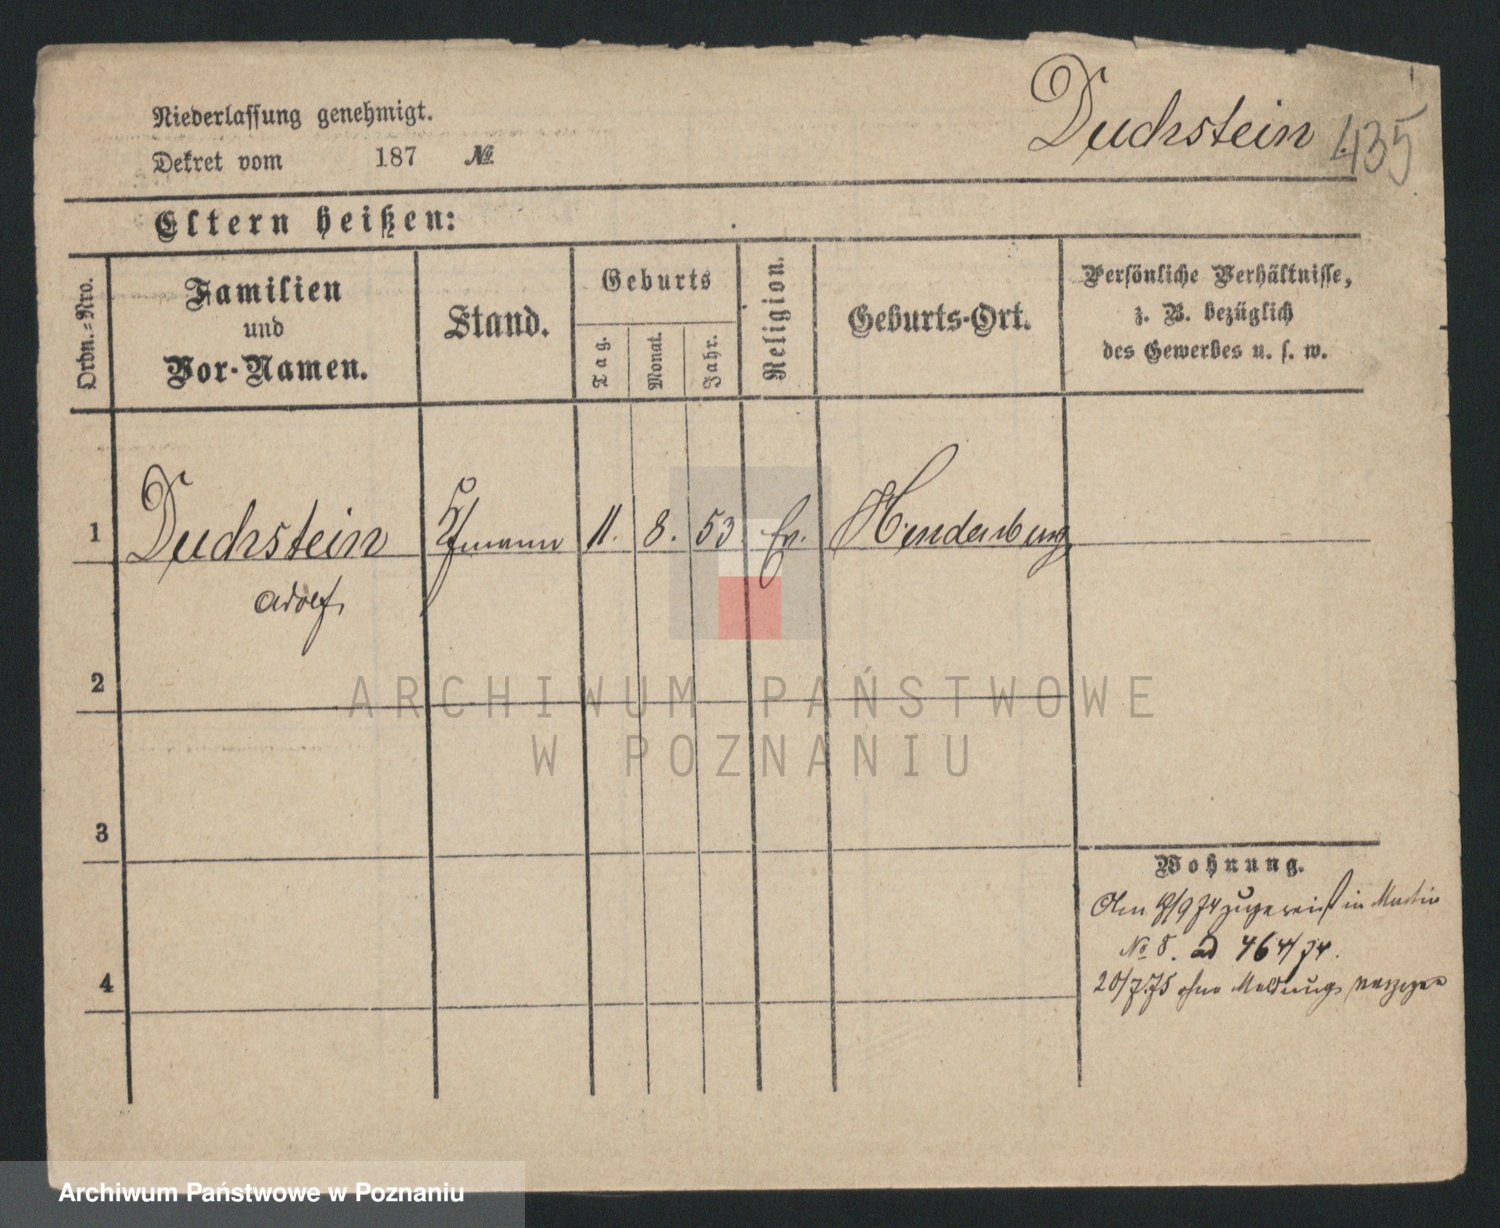 Duchstein 435
Niederlassung genehmigt.
Dekret vom 187 №
Eltern heißen:
Ordn.=Nro.
Familien
und
Vor-Namen.
Stand.
Geburts
Tag.
Monat.
Jahr.
Religion.
Geburts-Ort.
Persönliche Verhältnisse,
z. B. bezüglich
des Gewerbes u. s. w.
1 Duchstein Kfmann 11. 8. 53 Ev.
Adolf
2
ARCHIWUM PAŃSTWOWE
W POZNANIU
3
Wohnung.
Am /9 74 zugereist in Martin
№ 8. ad 464/74.
4
20/7.75 ohne Meldung verzogen
Archiwum Państwowe w Poznaniu